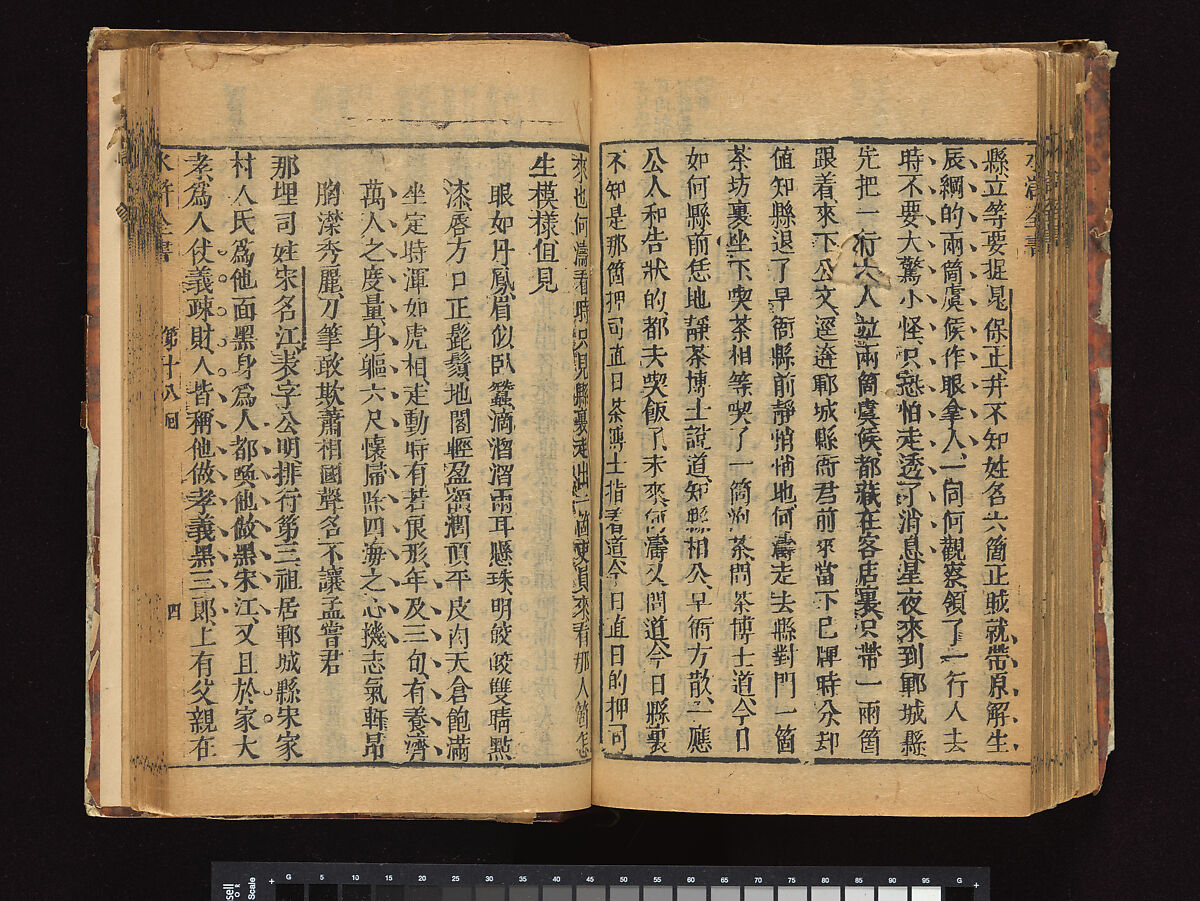 水滸全書
縣立等要捉晁保正并不知姓名六箇正賊就帶原解生
辰綱的兩箇虞候作眼拿人一同何觀察領了一行人去
時不要大驚小怪只恐怕走透了消息星夜來到鄆城縣
先把一行六人並兩箇虞候都藏在客店裏只帶一兩箇
跟着來下公文逕逩鄆城縣衙君前來當下巳牌時分却
值知縣退了早衙縣前靜悄悄地何濤走去縣對門一箇
茶坊裏坐下喫茶相等喫了一箇泡茶問茶博士道今日
如何縣前恁地靜茶博士說道知縣相公早衙方散一應
公人和告狀的都去喫飯了未來何濤又問道今日縣裏
不知是那箇押司直日茶博士指着道今日直日的押司
來也何濤看時只見縣裏走出一箇吏員來看那人箇怎
生模樣但見
眼如丹鳳眉似卧蠶滴溜溜兩耳懸珠明皎皎雙睛點
漆唇方口正髭鬚地閣輕盈額濶頂平皮肉天倉飽滿
坐定時渾如虎相走動時有若狼形年及三旬有養濟
萬人之度量身軀六尺懷掃除四海之心機志氣軒昂
胸襟秀麗刀筆敢欺蕭相國聲名不讓孟嘗君
那埋司姓宋名江表字公明排行第三祖居鄆城縣宋家
村人氏爲他面黑身爲人都喚他做黑宋江又且於家大
孝爲人仗義疎財人皆稱他做孝義黑三郎上有父親在
水滸全書 第十八回 四
5 10 15 20 25 30 35 40 45 50 55 60 65 70 75 80 85 90 95
Scale